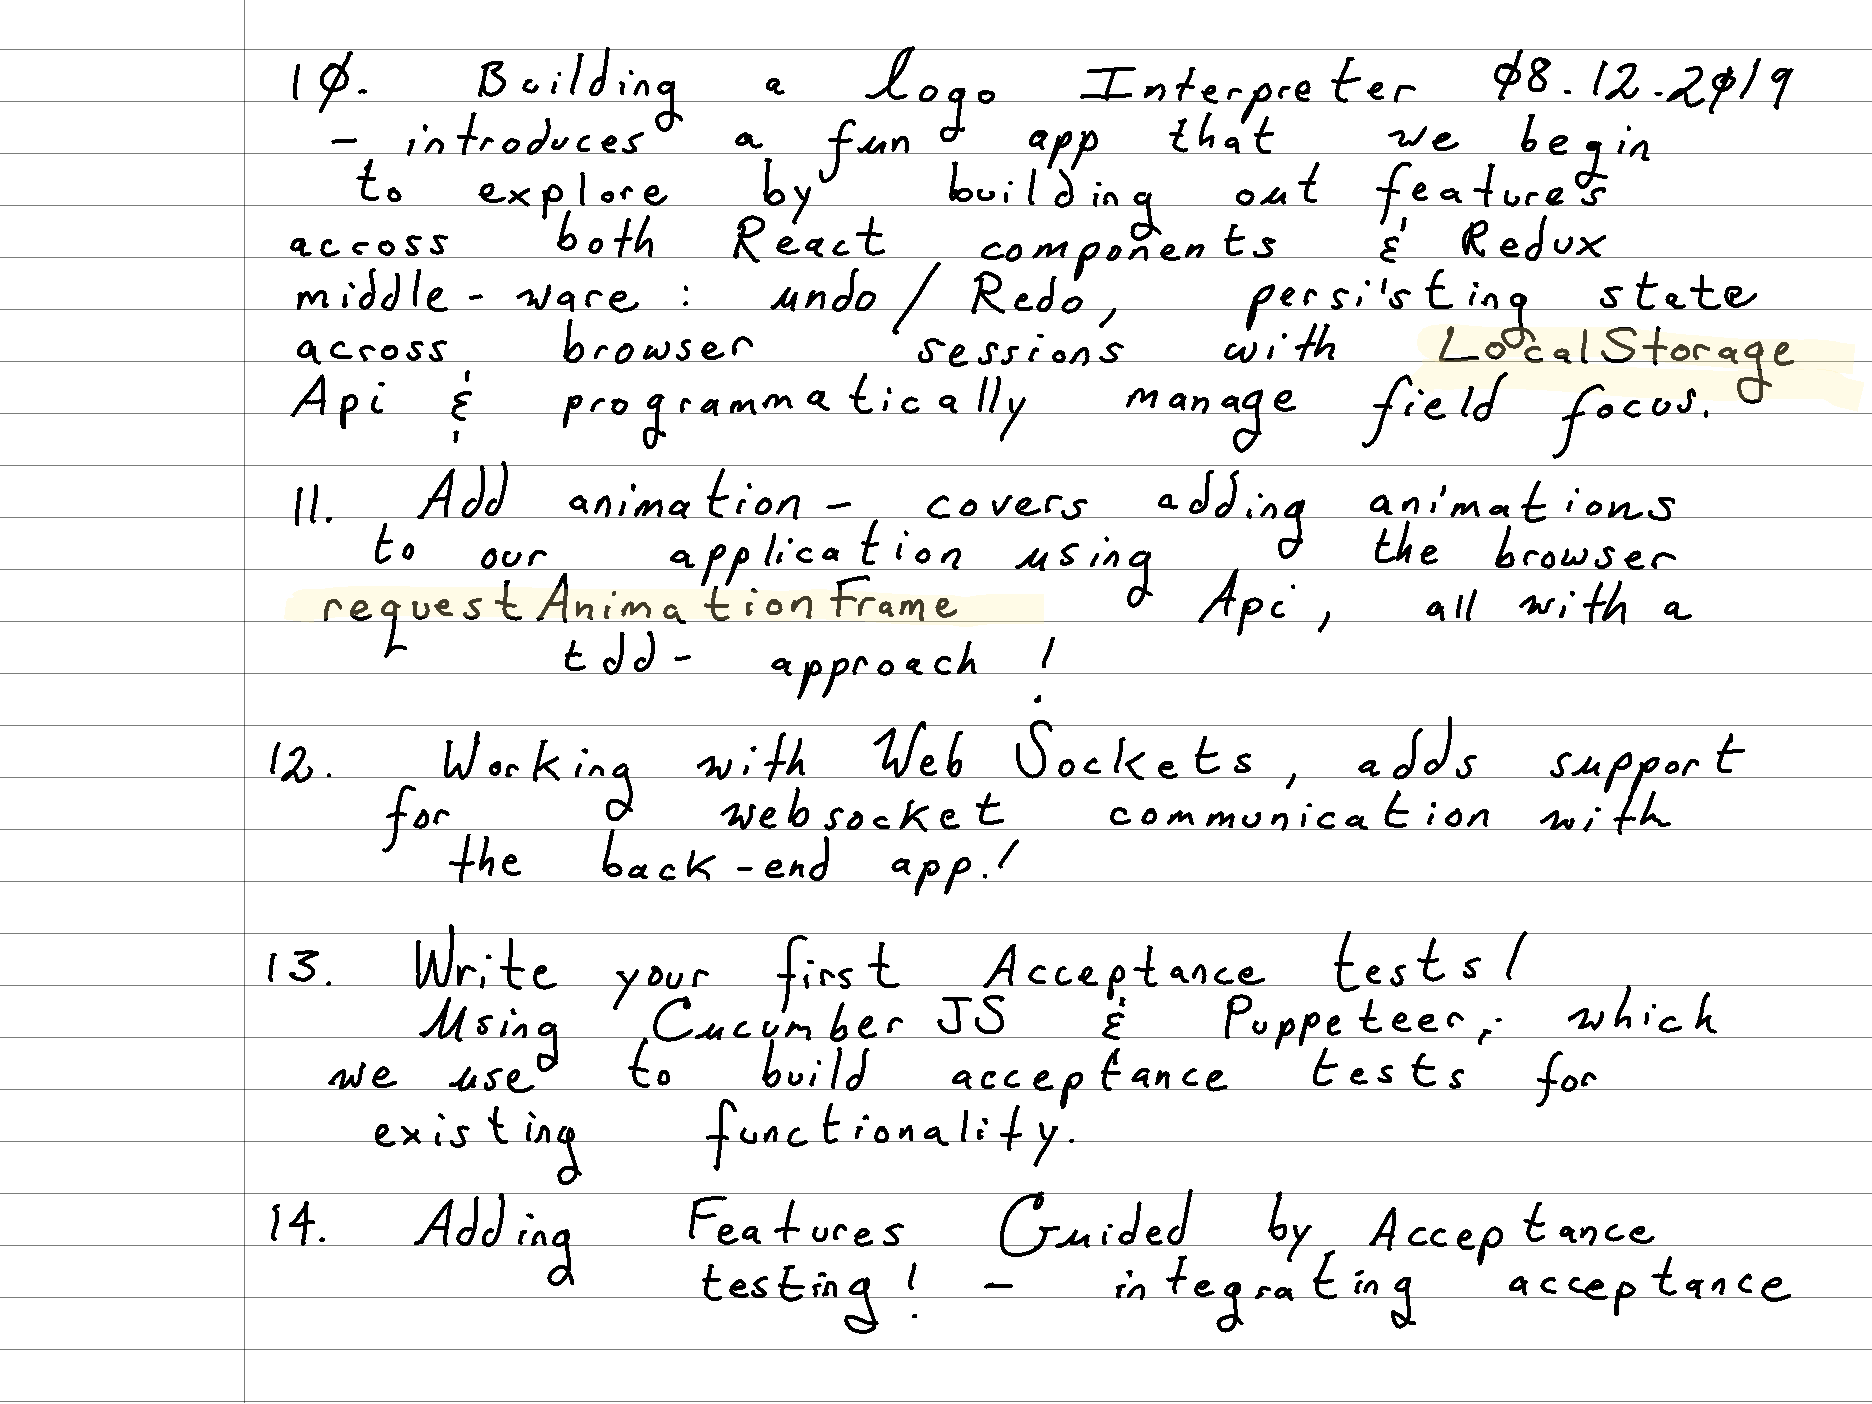 10. Building a logo Interpreter 08.12.2019
- introduces a fun app that we begin
to explore by building out features
across both React components & Redux
middle-ware: undo/Redo, persisting state
across browser sessions with LocalStorage
Api & programmatically manage field focus.
11. Add animation - covers adding animations
to our application using the browser
requestAnimationFrame Api, all with a
tdd- approach!
12. Working with Web Sockets, adds support
for websocket communication with
the back-end app.!
13. Write your first Acceptance tests!
Using Cucumber JS & Puppeteer, which
we use to build acceptance tests for
existing functionality.
14. Adding Features Guided by Acceptance
testing! - integrating acceptance